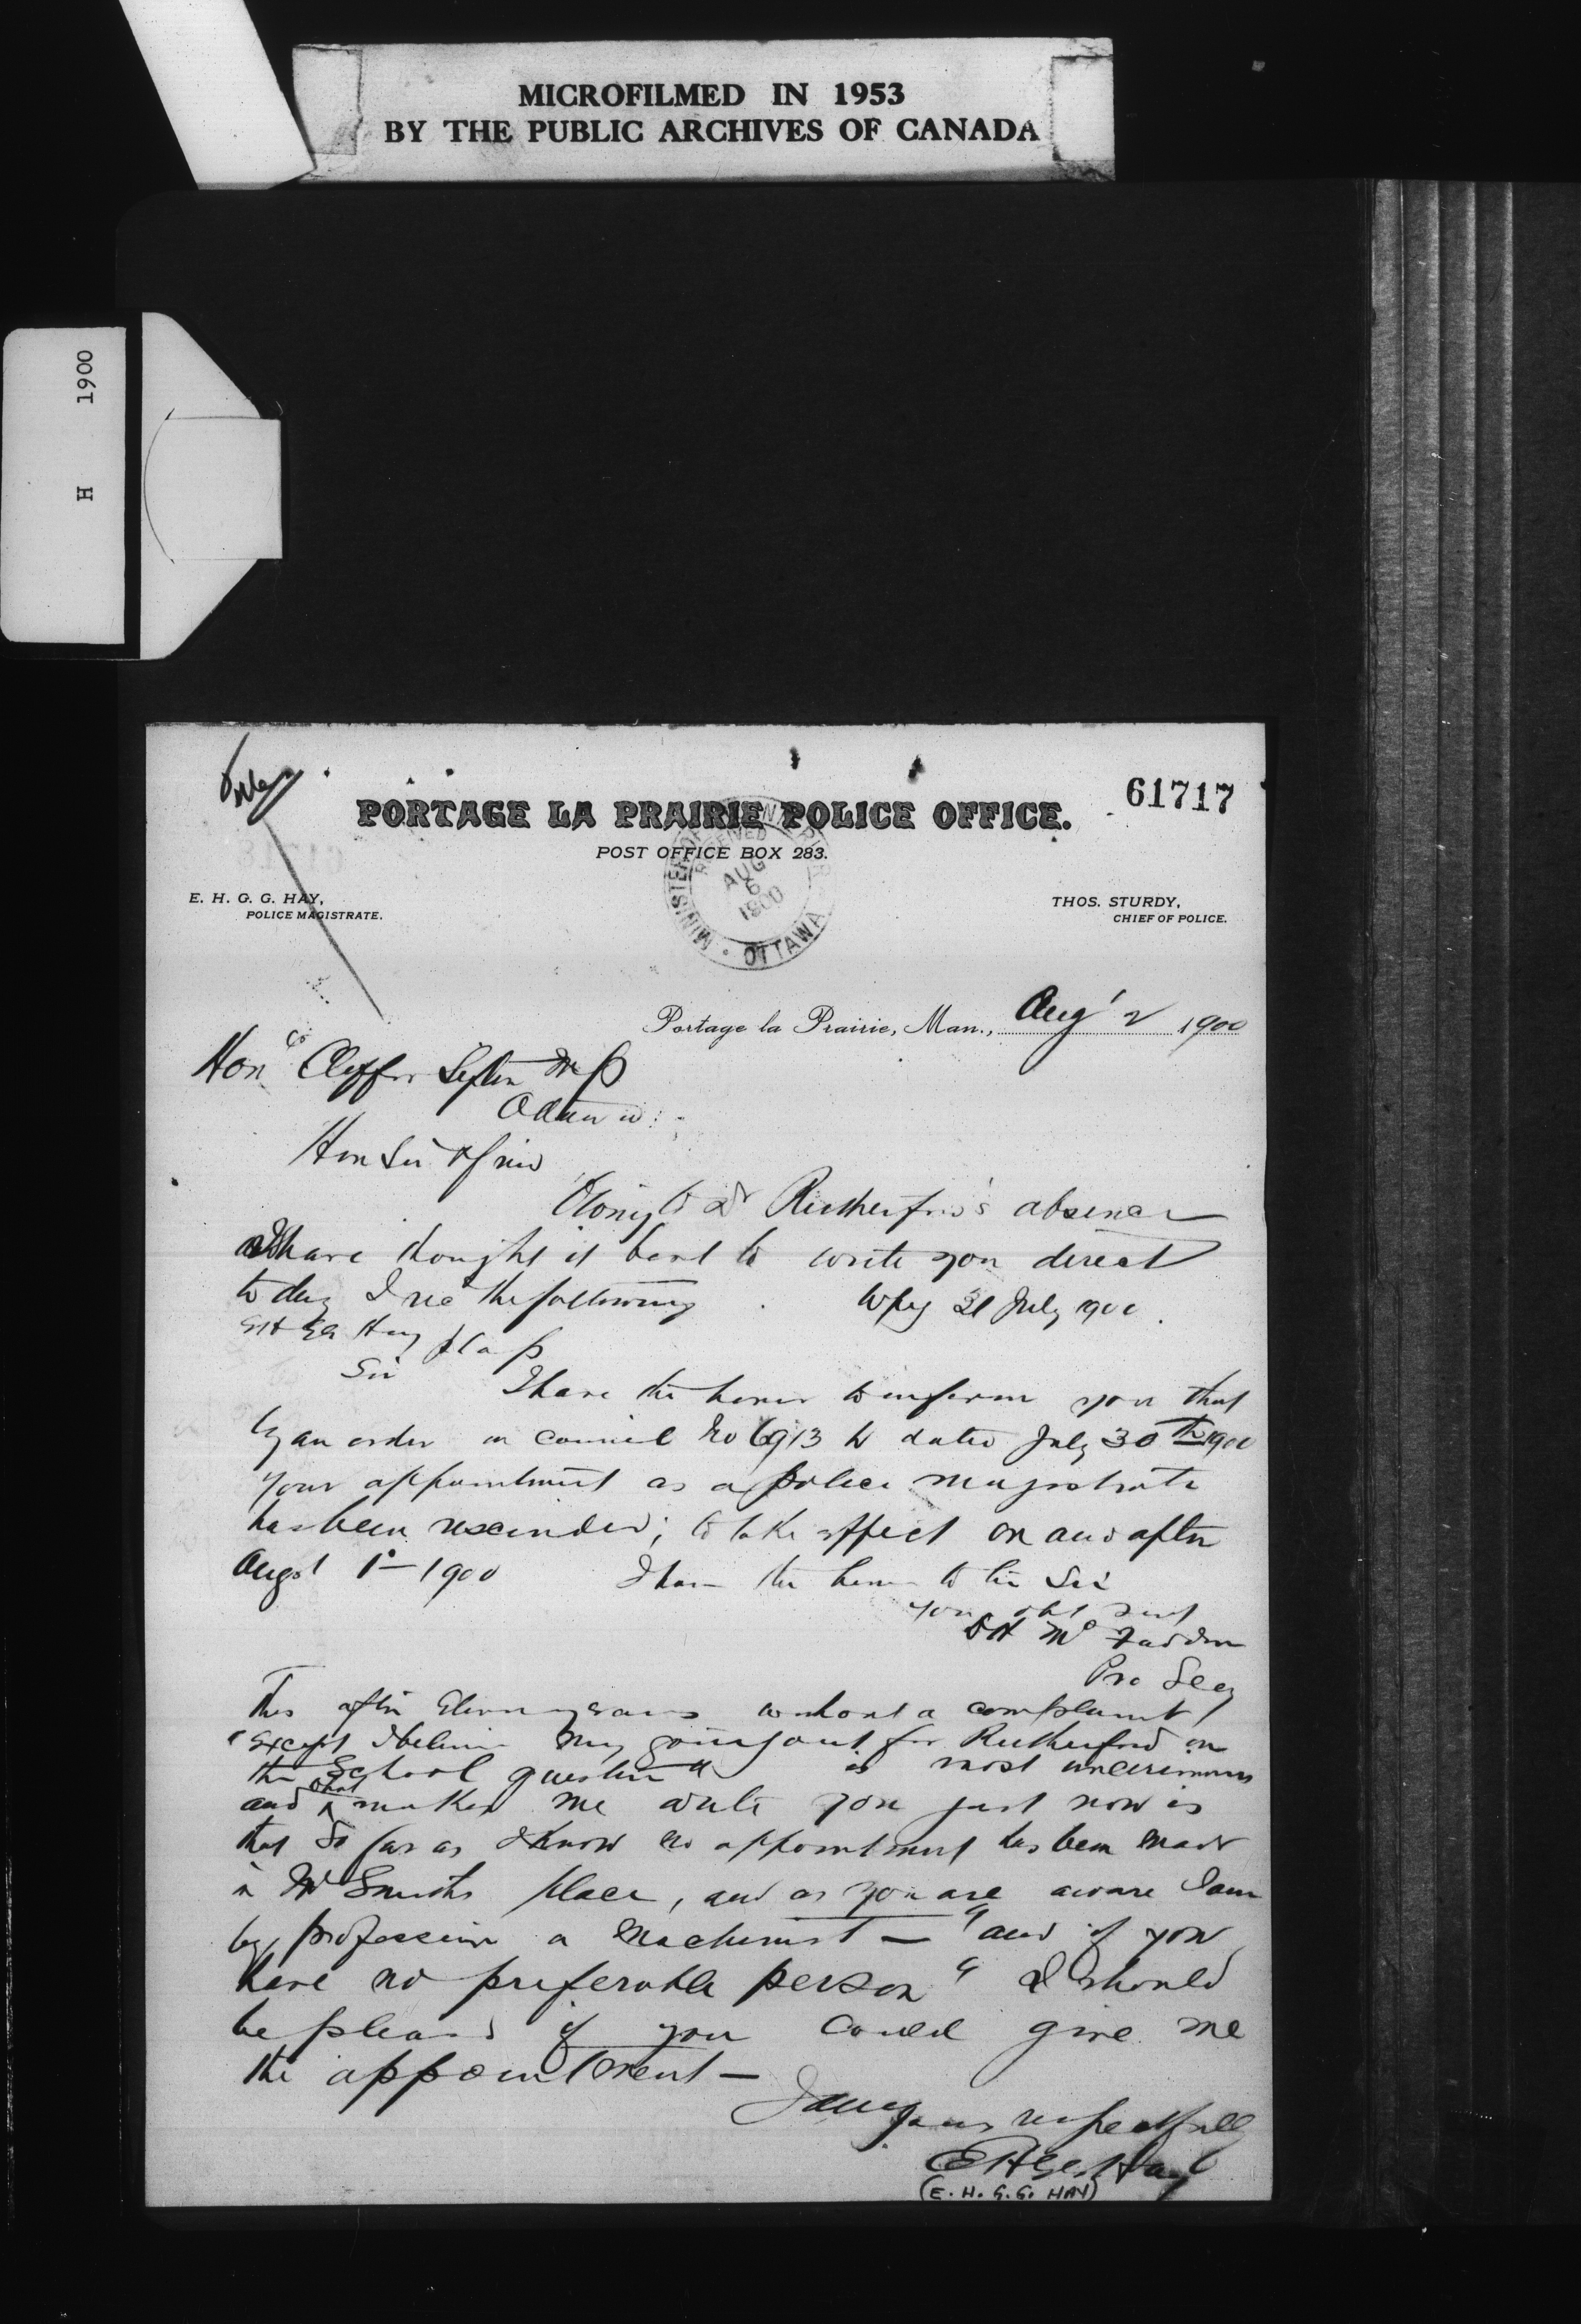 MICROFILMED IN 1953
BY THE PUBLIC ARCHIVES OF CANADA
H 1900
61717
PORTAGE LA PRAIRIE POLICE OFFICE.
POST OFFICE BOX 283.
E. H. G. G. HAY,
POLICE MAGISTRATE.
THOS. STURDY,
CHIEF OF POLICE.
MINISTER OF INTERIOR
RECEIVED
AUG
6
1900
OTTAWA
Portage la Prairie, Man., Aug' 2 1900
Hon Clifford Sifton MP
Ottawa
Hon Sir & friend
Owing to Dr Rutherford's absence
I have thought it best to write you direct
to day I recd the following Wpg 31 July 1900
EH GG Hay P la P
Sir
I have the honor to inform you that
by an order in council No 6913 dated July 30th 1900
your appointment as a police magistrate
has been rescinded; to take effect on and after
August 1st 1900 I have the honor to be Sir
your obt servt
D H McFadden
Pro Secy
This after Eleven years without a complaint
"except I believe my going out for Rutherford on
the School question" is most unceremonious
and what makes me write you just now is
that So far as I know no appointment has been made
in Mr Smiths place, and as you are aware I am
by profession a machinist — "and if you
have no preferable person" I should
be pleased if you could give me
the appointment —
I am
yours respectfully
EHGG Hay
(E. H. G. G. HAY)